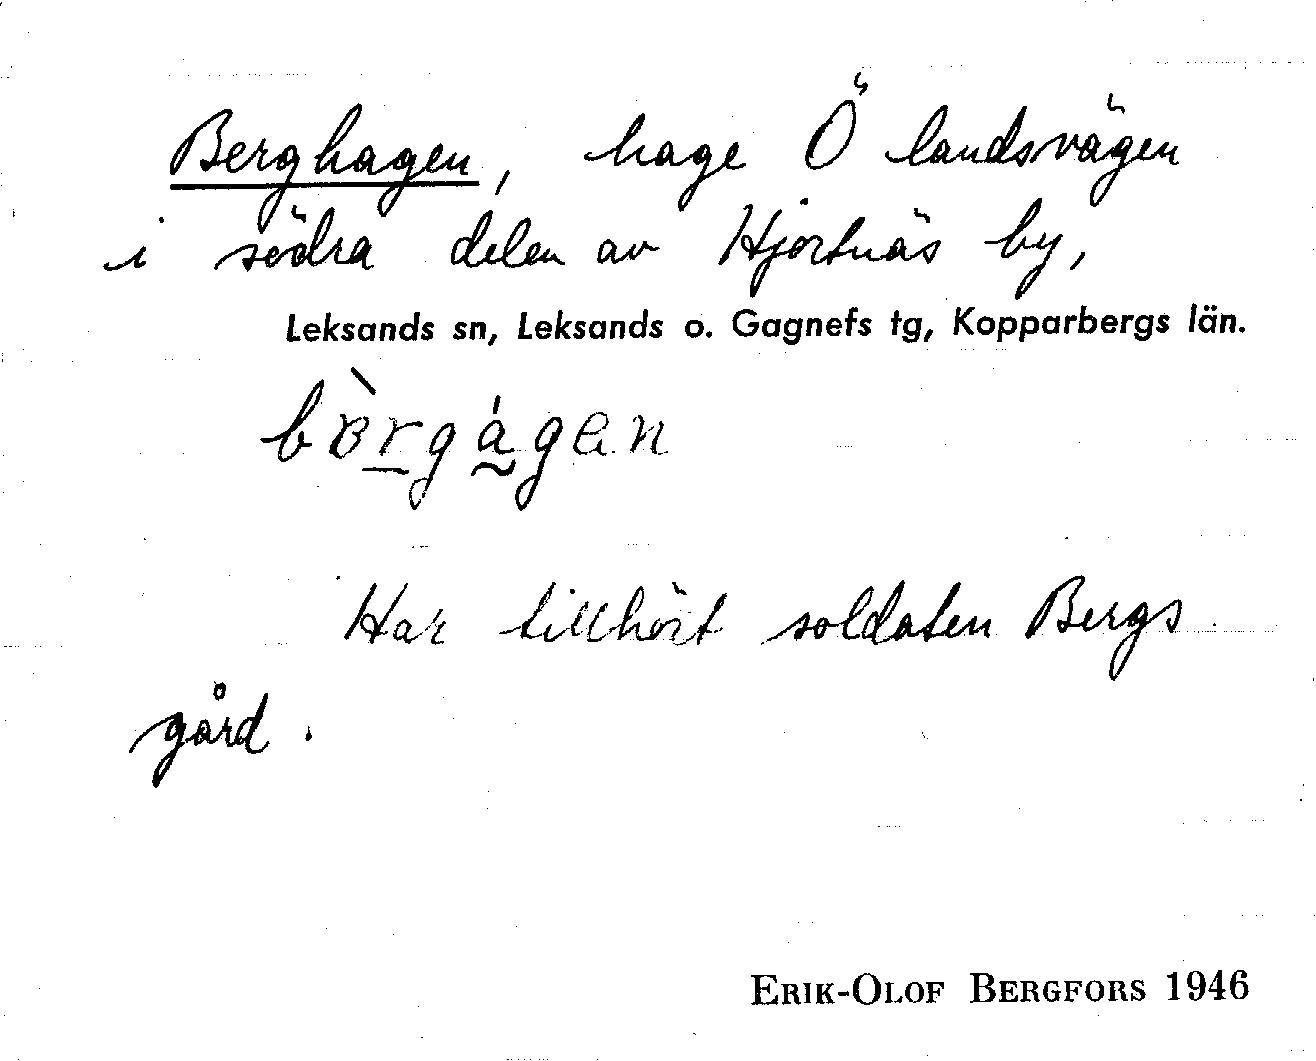 Berghagen, hage Ö landsvägen
i södra delen av Hjortnäs by,
Leksands sn, Leksands o. Gagnefs tg, Kopparbergs län.
Har tillhört soldaten Bergs
gård.
ERIK-OLOF BERGFORS 1946